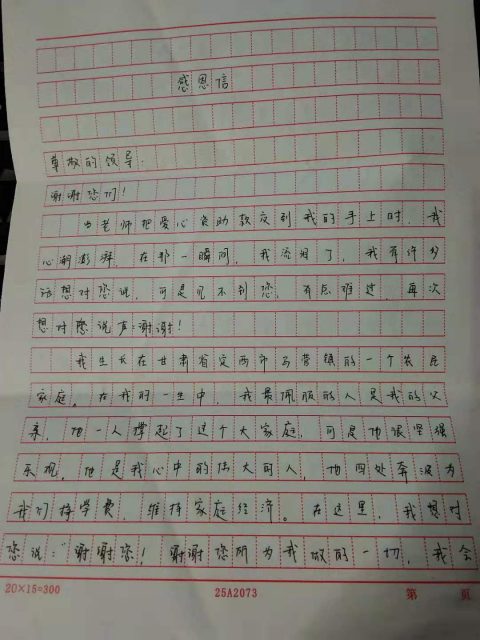 感恩信
尊敬的领导:
谢谢您们!
当老师把爱心资助款交到我的手上时,我
心潮澎湃,在那一瞬间,我流泪了,我有许多
话想对您说,可是见不到您,有点难过,再次
想对您说声:谢谢!
我生长在甘肃省定西市马营镇的一个农民
家庭,在我的一生中,我最佩服的人是我的父
亲,他一人撑起了这个大家庭,可是他很坚强
乐观,他是我心中的伟大的人,他四处奔波为
我们挣学费,维持家庭经济。在这里,我想对
您说:"谢谢您!谢谢您所为我做的一切,我会
20×15=300 25A2073 第 页